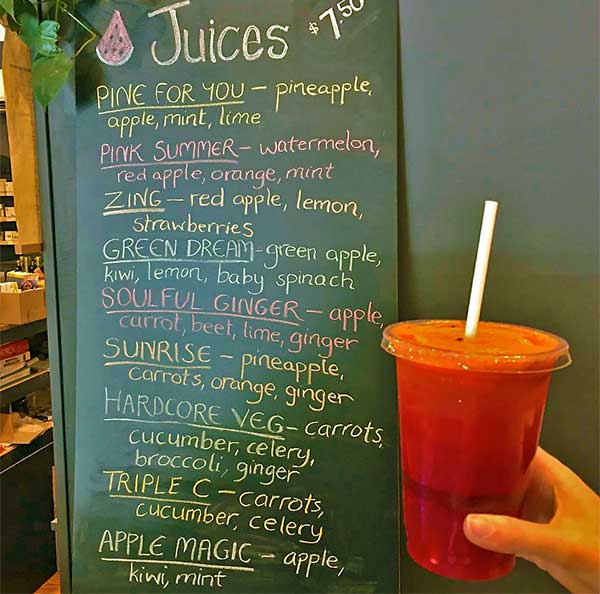 Juices $7.50
PINE FOR YOU – pineapple,
apple, mint, lime
PINK SUMMER – watermelon,
red apple, orange, mint
ZING – red apple, lemon,
strawberries
GREEN DREAM – green apple,
kiwi, lemon, baby spinach
SOULFUL GINGER – apple,
carrot, beet, lime, ginger
SUNRISE – pineapple,
carrots, orange, ginger
HARDCORE VEG – carrots,
cucumber, celery,
broccoli, ginger
TRIPLE C – carrots,
cucumber, celery
APPLE MAGIC – apple,
kiwi, mint